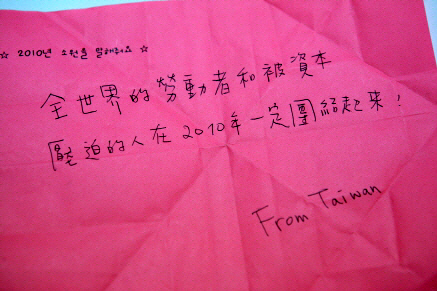 ☆ 2010년 소원을 말해줘요 ☆
全世界的勞動者和被資本
壓迫的人在2010年一定團結起來!
From Taiwan